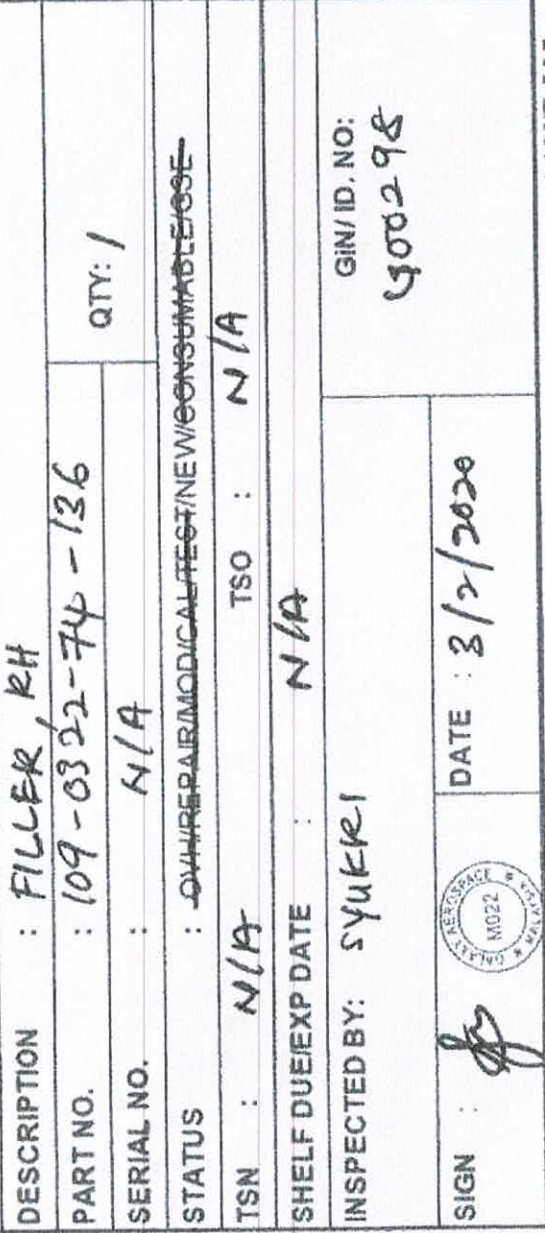 DESCRIPTION : FILLER, RH
PART NO. : 109-0322-74-136 QTY: 1
SERIAL NO. : N/A
STATUS : OVH/REPAIR/MOD/CAL/TEST/NEW/CONSUMABLE/GSE
TSN : N/A TSO : N/A
SHELF DUE/EXP DATE : N/A
INSPECTED BY: SYUKRI GIN/ ID. NO:
G00298
SIGN : GALAXY AEROSPACE M022 DATE : 3/2/2020